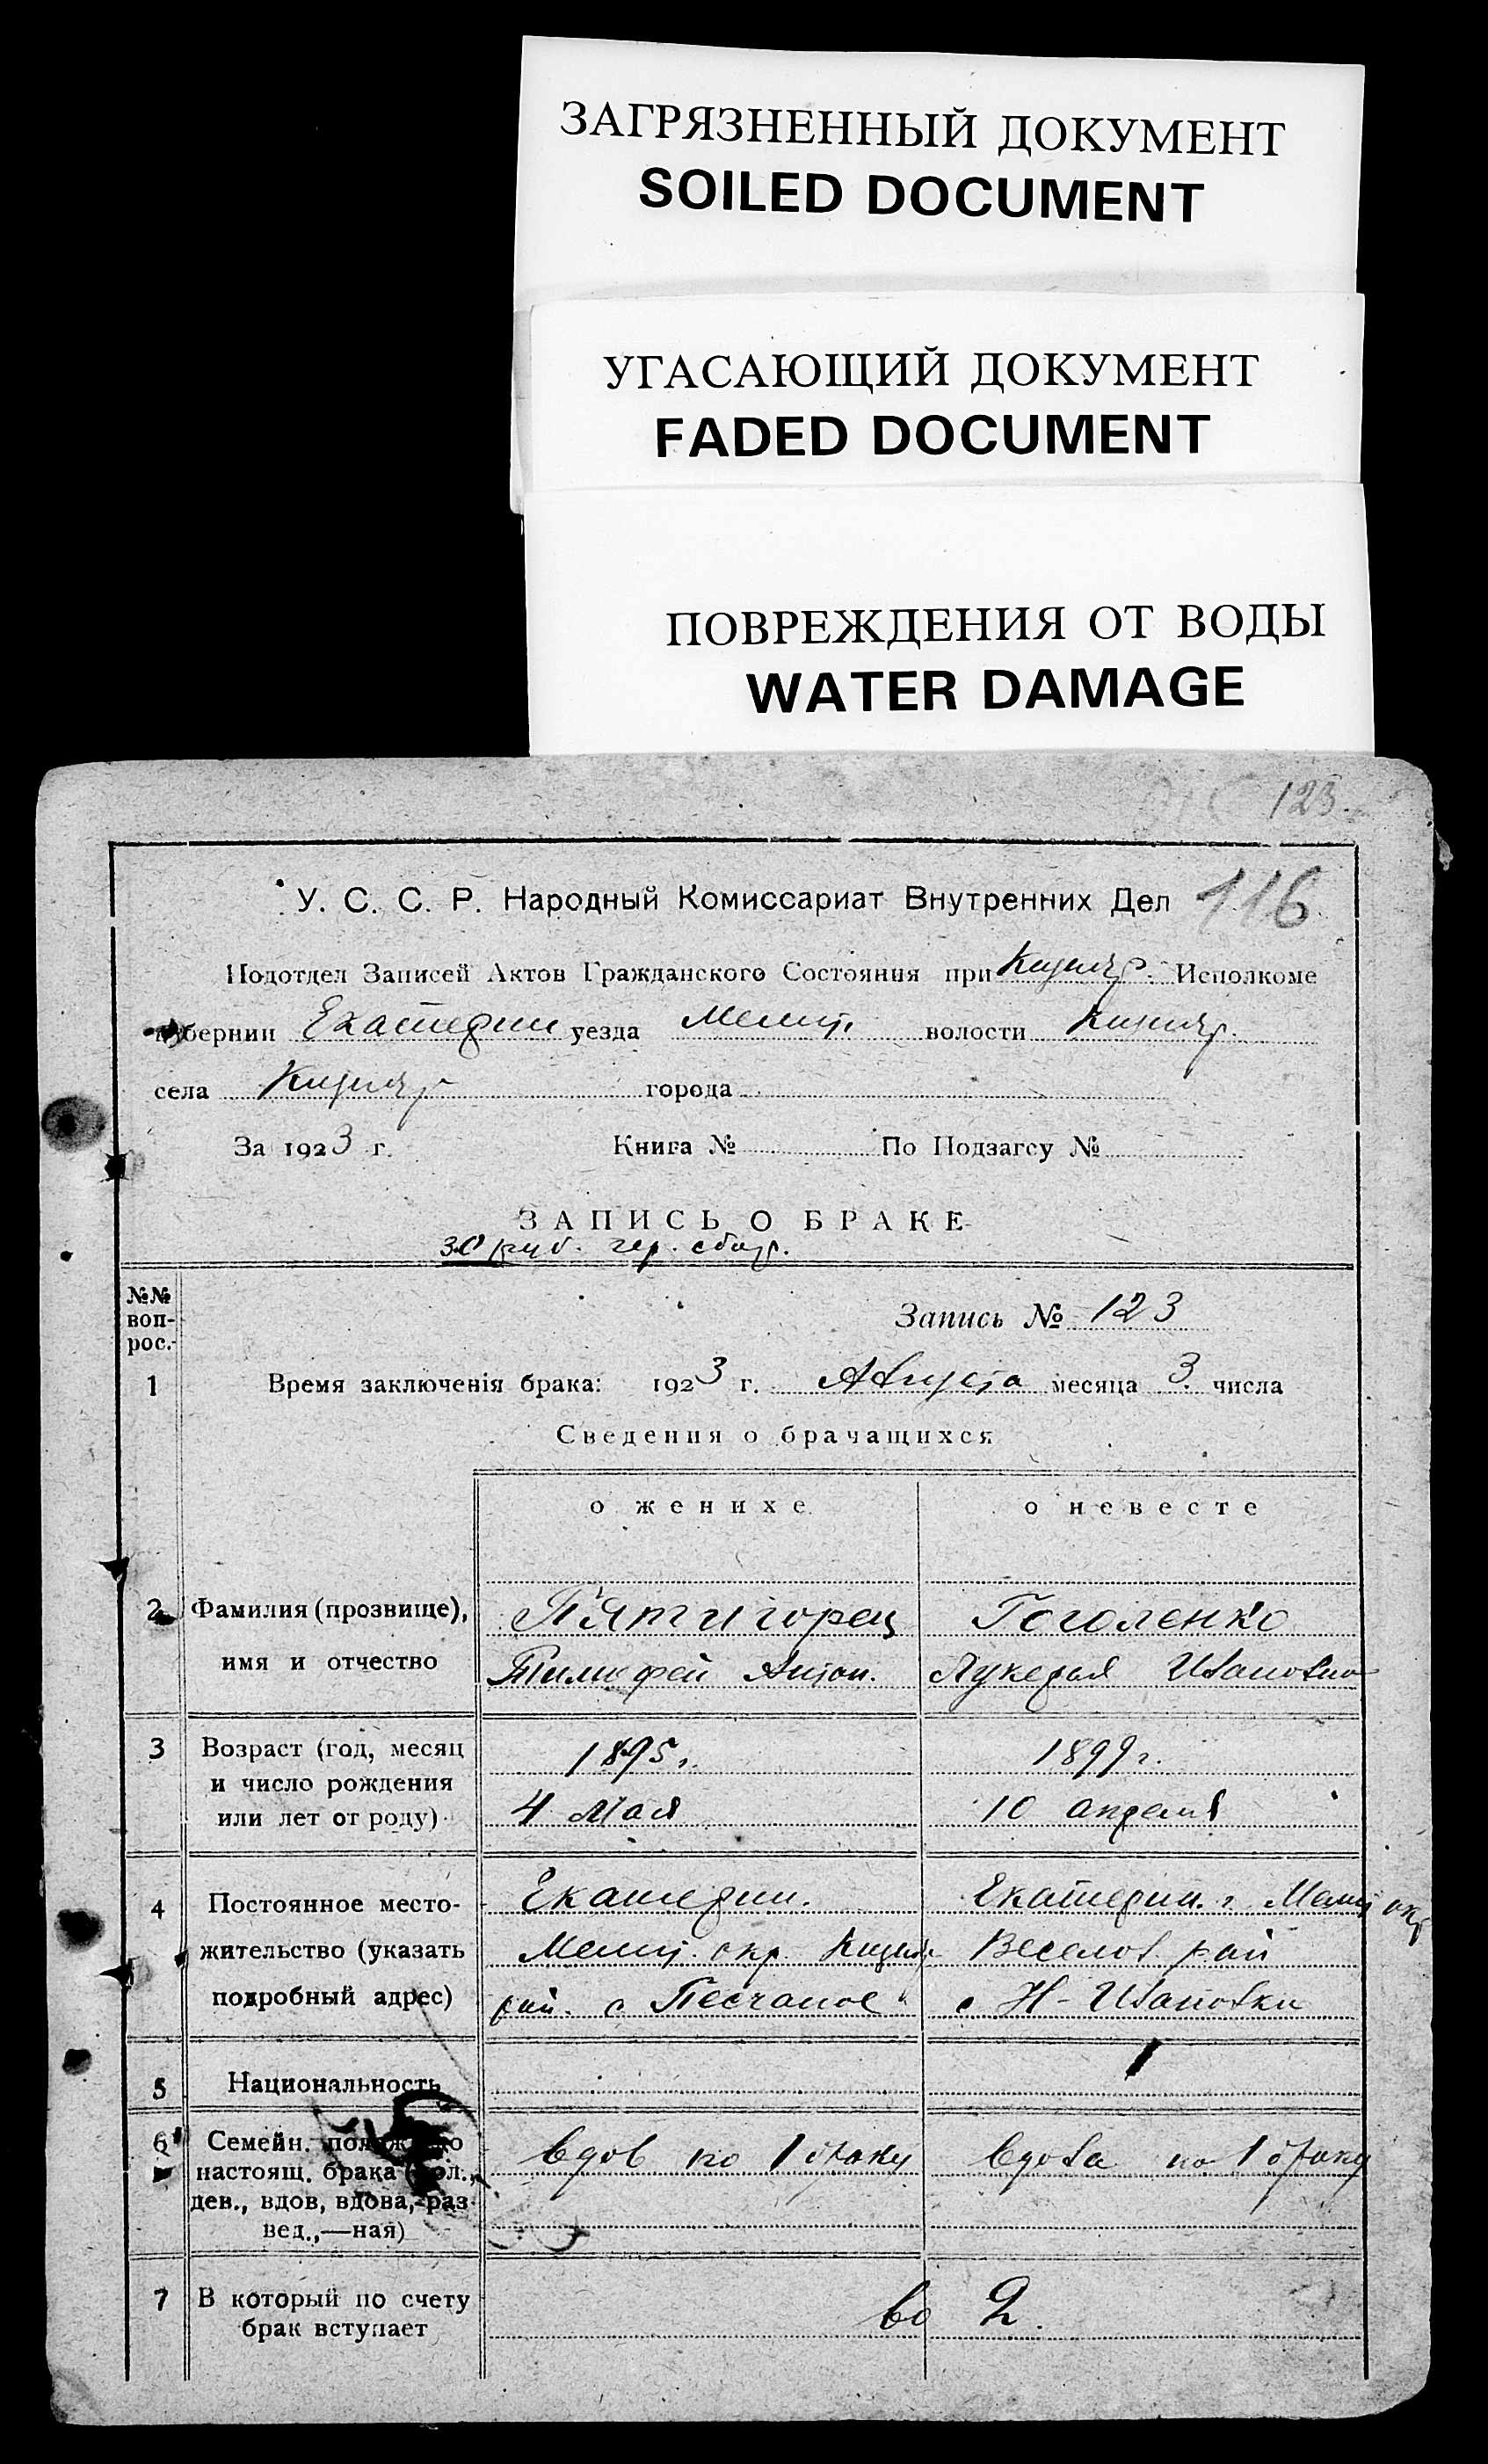 ЗАГРЯЗНЕННЫЙ ДОКУМЕНТ
SOILED DOCUMENT
УГАСАЮЩИЙ ДОКУМЕНТ
FADED DOCUMENT
ПОВРЕЖДЕНИЯ ОТ ВОДЫ
WATER DAMAGE
123
У. С. С. Р. Народный Комиссариат Внутренних Дел 116
Подотдел Записей Актов Гражданского Состояния при Кизияр. Исполкоме
губернии Екатерин уезда Мелит. волости Кизияр.
села Кизияр города
За 1923 г. Книга № По Подзагсу №
ЗАПИСЬ О БРАКЕ
30 руб. гер. сбор.
№№ вопрос.
Запись № 123
1 Время заключенія брака: 1923 г. Августа месяца 3 числа
Сведения о брачащихся
о женихе о невесте
2 Фамилия (прозвище), Пятигорец Гоголенко
имя и отчество Тимофей Антон. Лукерья Ивановна
3 Возраст (год, месяц 1895 г. 1899 г.
и число рождения
или лет от роду) 4 Мая 10 апреля
4 Постоянное место- Екатерин. Екатерин. г. Мелит окр
жительство (указать Мелит. окр. Кизияр Веселов. рай
подробный адрес) рай. с Песчаное с Н-Ивановки
5 Национальность
6 Семейн. полож. до вдов по 1 браку вдова по 1 браку
настоящ. брака (хол.,
дев., вдов, вдова, раз
вед.,—ная)
7 В который по счету
брак вступает во 2.